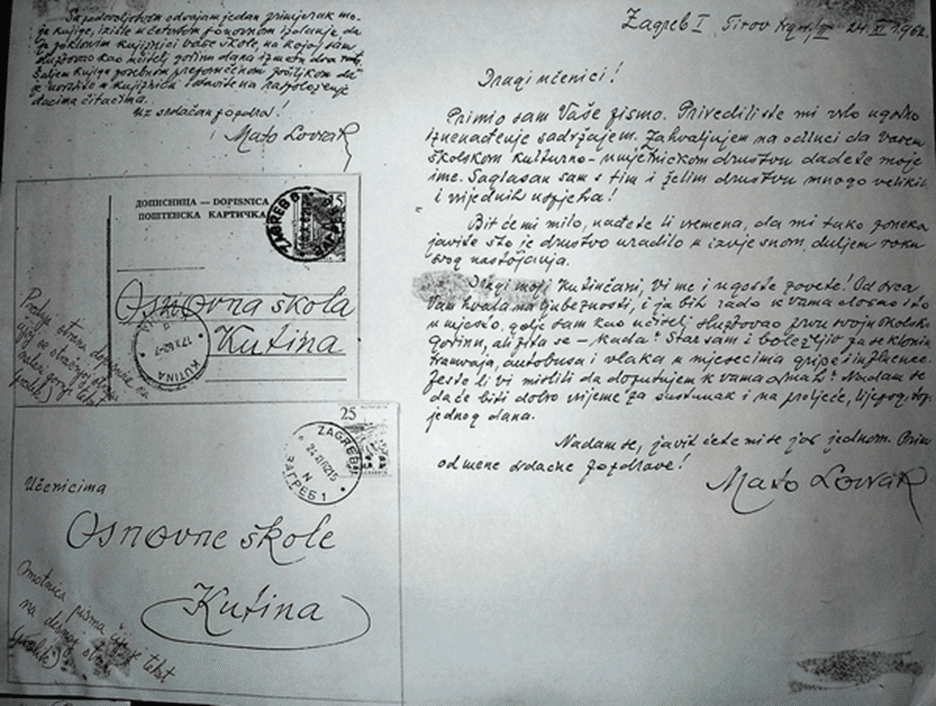 Sa zadovoljstvom odvajam jedan primjerak mo-
je knjige, izišle u četvrtom ponovnom izdanju da
je poklonim knjižnici vaše škole, na kojoj sam
službovao kao učitelj godinu dana između dva rata.
Šaljem knjigu posebnom preporučenom pošiljkom da
je uvrstite u knjižnicu i stavite na raspoloženje
đacima čitaocima.
Uz srdačan pozdrav!
Mato Lovrak
ДОПИСНИЦА — DOPISNICA
ПОШТЕНСКА КАРТИЧКА
15
ZAGREB
Osnovna škola
Kutina
KUTINA
Prednja strana dopisnice na
čijoj se stražnjoj strani
nalazi gornji tekst
25
ZAGREB
ЗАГРЕБ 1
Učenicima
Osnovne škole
Kutina
Omotnica pisma čiji je tekst
na desnoj strani
Zagreb I Titov trg 24. XI 1962.
Dragi učenici!
Primio sam Vaše pismo. Priredili ste mi vrlo ugodno
iznenađenje sadržajem. Zahvaljujem na odluci da vašem
školskom kulturno-umjetničkom društvu dadete moje
ime. Saglasan sam s tim i želim društvu mnogo velikih
i vrijednih uspjeha!
Bit će mi milo, nađete li vremena, da mi tako poneka
javite što je društvo uradilo u izvjesnom, duljem roku
svog nastojanja.
Dragi moji Kutinčani, vi me i u goste zovete! Od srca
Vam hvala na ljubeznosti, i ja bih rado k vama došao i to
u mjesto, gdje sam kao učitelj službovao prvu svoju školsku
godinu, ali pita se – kada? Star sam i boležljiv pa se klonim
tramvaja, autobusa i vlaka u mjesecima gripe i influence.
Jeste li vi mislili da doputujem k vama odmah? Nadam se
da će biti dobro vrijeme za sastanak i na proljeće, lijepog,
jednog dana.
Nadam se, javit ćete mi se još jednom.
od mene srdačne pozdrave!
Mato Lovrak